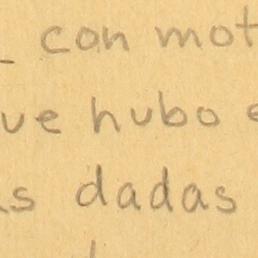 con mot
ue hubo e
s dadas